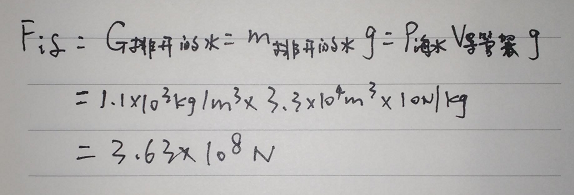 F浮 = G排开海水 = m排开海水 g = ρ海水 V导管架 g
= 1.1×10³kg/m³× 3.3×10⁴m³×10N/kg
= 3.63×10⁸ N